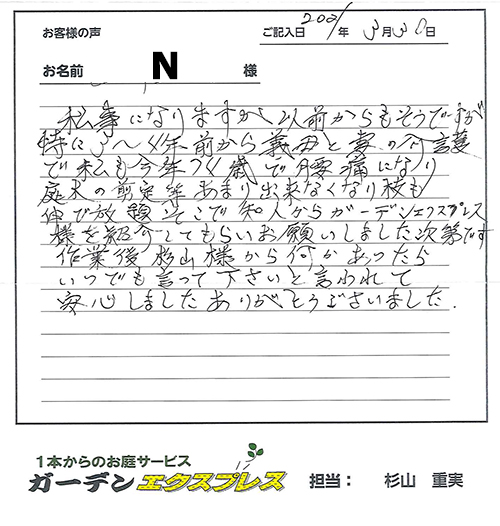 お客様の声 ご記入日 2021年 3月30日
お名前 N 様
私事になりますが以前からもそうですが
特に3〜4年前から義母と妻の介護
で私も今年 歳で腰痛になり
庭木の剪定等あまり出来なくなり枝も
伸び放題そこで知人からガーデンエクスプレス
様を紹介してもらいお願いしました次第です
作業後杉山様から何かあったら
いつでも言って下さいと言われて
安心しましたありがとうございました.
1本からのお庭サービス
ガーデンエクスプレス 担当： 杉山 重実